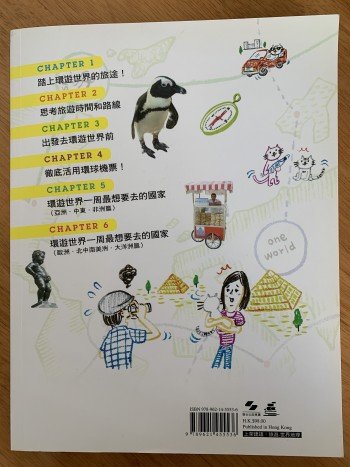 CHAPTER 1
踏上環遊世界的旅途！
CHAPTER 2
思考旅遊時間和路線
CHAPTER 3
出發去環遊世界前
CHAPTER 4
徹底活用環球機票！
CHAPTER 5
環遊世界一周最想要去的國家
（亞洲·中東·非洲篇）
CHAPTER 6
環遊世界一周最想要去的國家
（歐洲·北中南美洲·大洋洲篇）
one
world
H.K.$98.00
Published in Hong Kong